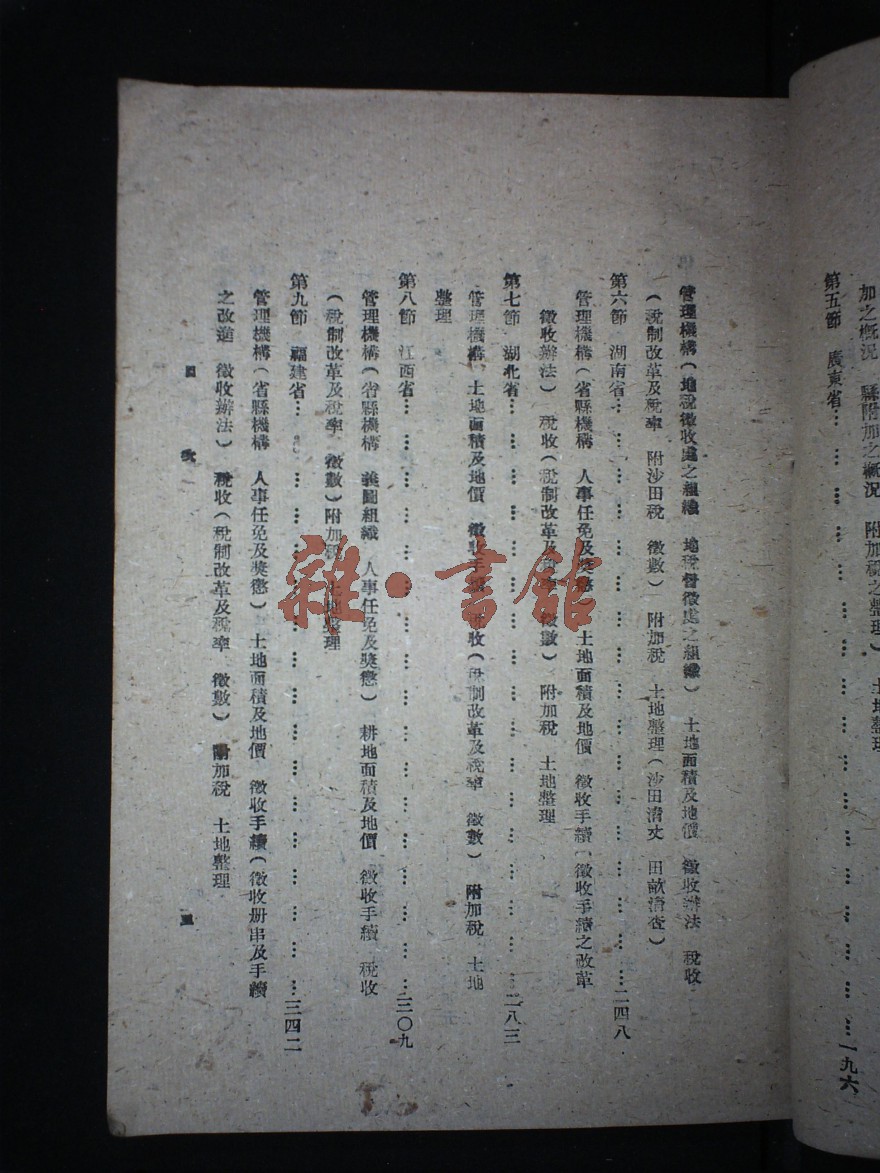 加之概況　縣附加之概況　附加稅之整理）　土地整理
第五節　廣東省… … … … … … … … … … … …一九六
管理機構（地稅徵收處之組織　地稅督徵處之組織）　土地面積及地價　徵收辦法　稅收
（稅制改革及稅率　附沙田稅　徵數）　附加稅　土地整理（沙田清丈　田畝清查）
第六節　湖南省… … … … … … … … … … … …二四八
管理機構（省縣機構　人事任免及獎懲）　土地面積及地價　徵收手續（徵收手續之改革
徵收辦法）　稅收（稅制改革及稅率　徵數）　附加稅　土地整理
第七節　湖北省… … … … … … … … … … … …二八三
管理機構　土地面積及地價　徵收手續　稅收（稅制改革及稅率　徵數）　附加稅　土地
整理
第八節　江西省… … … … … … … … … … … …三〇九
管理機構（省縣機構　義圖組織　人事任免及獎懲）　耕地面積及地價　徵收手續　稅收
（稅制改革及稅率　徵數）附加稅　土地整理
第九節　福建省… … … … … … … … … … … …三四二
管理機構（省縣機構　人事任免及獎懲）　土地面積及地價　徵收手續（徵收册串及手續
之改進　徵收辦法）　稅收（稅制改革及稅率　徵數）　附加稅　土地整理
目　次　三
雜·書館